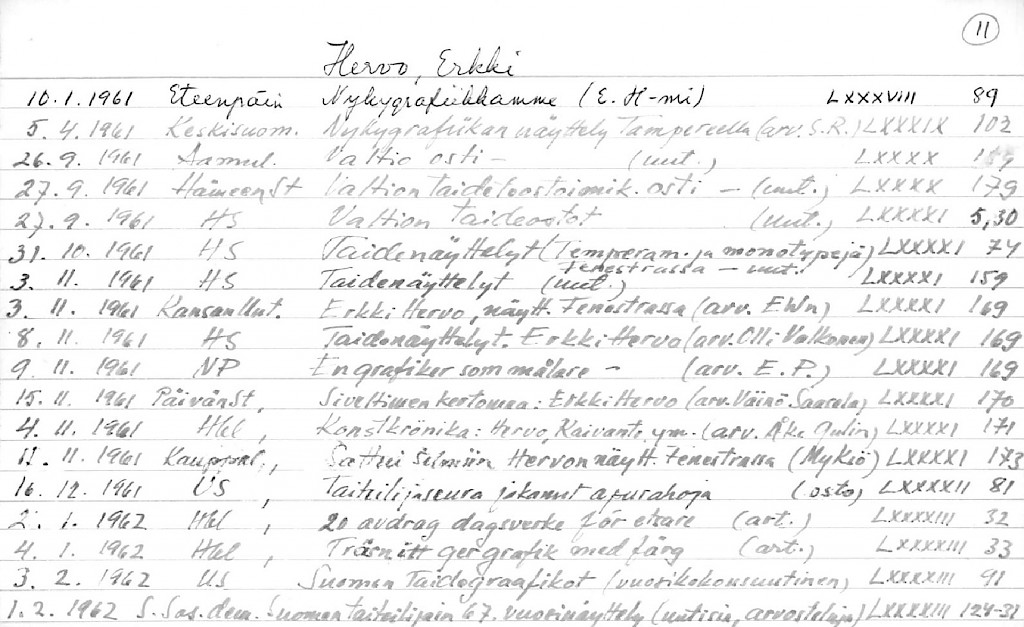 11
Hervo, Erkki
10.1.1961 Eteenpäin Nykygrafiikkamme (E. H-mi) LXXXVIII 89
5. 4. 1961 Keskisuom. Nykygrafiikan näyttely Tampereella (arv. S.R.) LXXXIX 102
26. 9. 1961 Aamul. Valtio osti – (uut.) LXXXX
27. 9. 1961 HämeenSt Valtion taideteostoimik. osti – (uut.) LXXXX 179
27. 9. 1961 HS Valtion taideostot (uut.) LXXXXI 5,30
31. 10. 1961 HS Taidenäyttelyt (Temperam. ja monotypejä) LXXXXI 74
Fenestrassa – uut.
3. 11. 1961 HS Taidenäyttelyt (uut.) LXXXXI 159
3. 11. 1961 KansanUut. Erkki Hervo, näytt. Fenestrassa (arv. EWn) LXXXXI 169
8. 11. 1961 HS Taidenäyttelyt. Erkki Hervo (arv. Olli Valkonen) LXXXXI 169
9. 11. 1961 NP En grafiker som målare – (arv. E. P.) LXXXXI 169
15. 11. 1961 PäivänSt, Siveltimen kertomaa: Erkki Hervo (arv. Väinö Saarela) LXXXXI 170
4. 11. 1961 Hbl, Konstkrönika: Hervo, Kaivanto ym. (arv. Åke Gulin) LXXXXI 171
11. 11. 1961 Kauppal., Sattui silmiin Hervon näytt. Fenestrassa (MyKsö) LXXXXI 173
16. 12. 1961 US, Taiteilijaseura jakanut apurahoja (osto) LXXXXII 81
2. 1. 1962 Hbl, 20 avdrag dagsverke för etsare (art.) LXXXXIII 32
4. 1. 1962 Hbl, Träsnitt ger grafik med färg (art.) LXXXXIII 33
3. 2. 1962 US Suomen Taidegraafikot (vuosikokousuutinen) LXXXXIII 91
1. 2. 1962 S. Sos. dem. Suomen taiteilijain 67. vuosinäyttely (uutisia, arvosteluja) LXXXXIII 124-31